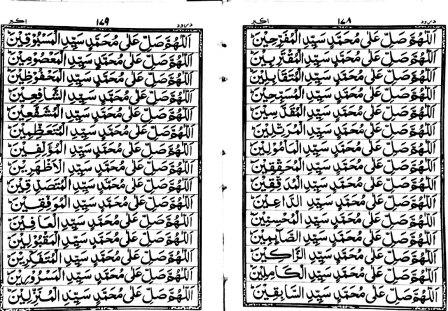 درود
١٧٨
اکبر
اَللّٰهُمَّ صَلِّ عَلٰى مُحَمَّدٍ سَيِّدِ الْمُفَرِّحِيْنَ
اَللّٰهُمَّ صَلِّ عَلٰى مُحَمَّدٍ سَيِّدِ الْمُقَرَّبِيْنَ
اَللّٰهُمَّ صَلِّ عَلٰى مُحَمَّدٍ سَيِّدِ الْمُتَقَابِلِيْنَ
اَللّٰهُمَّ صَلِّ عَلٰى مُحَمَّدٍ سَيِّدِ
اَللّٰهُمَّ صَلِّ عَلٰى مُحَمَّدٍ سَيِّدِ الْمُقَدَّسِيْنَ
اَللّٰهُمَّ صَلِّ عَلٰى مُحَمَّدٍ سَيِّدِ الْمُرَتِّلِيْنَ
اَللّٰهُمَّ صَلِّ عَلٰى مُحَمَّدٍ سَيِّدِ الْمَأْمُوْلِيْنَ
اَللّٰهُمَّ صَلِّ عَلٰى مُحَمَّدٍ سَيِّدِ الْمُحَقِّقِيْنَ
اَللّٰهُمَّ صَلِّ عَلٰى مُحَمَّدٍ سَيِّدِ الْمُدَقِّقِيْنَ
اَللّٰهُمَّ صَلِّ عَلٰى مُحَمَّدٍ سَيِّدِ الدَّاعِيْنَ
اَللّٰهُمَّ صَلِّ عَلٰى مُحَمَّدٍ سَيِّدِ الْمُحْسِنِيْنَ
اَللّٰهُمَّ صَلِّ عَلٰى مُحَمَّدٍ سَيِّدِ الصَّآئِمِيْنَ
اَللّٰهُمَّ صَلِّ عَلٰى مُحَمَّدٍ سَيِّدِ الزَّاكِيْنَ
اَللّٰهُمَّ صَلِّ عَلٰى مُحَمَّدٍ سَيِّدِ الْكَامِلِيْنَ
اَللّٰهُمَّ صَلِّ عَلٰى مُحَمَّدٍ سَيِّدِ السَّابِقِيْنَ
درود
١٧٩
اکبر
اَللّٰهُمَّ صَلِّ عَلٰى مُحَمَّدٍ سَيِّدِ الْمَسْبُوْقِيْنَ
اَللّٰهُمَّ صَلِّ عَلٰى مُحَمَّدٍ سَيِّدِ الْمَعْصُوْمِيْنَ
اَللّٰهُمَّ صَلِّ عَلٰى مُحَمَّدٍ سَيِّدِ الْمَحْفُوْظِيْنَ
اَللّٰهُمَّ صَلِّ عَلٰى مُحَمَّدٍ سَيِّدِ الشَّافِعِيْنَ
اَللّٰهُمَّ صَلِّ عَلٰى مُحَمَّدٍ سَيِّدِ الْمُشَفَّعِيْنَ
اَللّٰهُمَّ صَلِّ عَلٰى مُحَمَّدٍ سَيِّدِ الْمُتَعَظِّمِيْنَ
اَللّٰهُمَّ صَلِّ عَلٰى مُحَمَّدٍ سَيِّدِ الْمُؤَلِّفِيْنَ
اَللّٰهُمَّ صَلِّ عَلٰى مُحَمَّدٍ سَيِّدِ الْاَظْهَرِيْنَ
اَللّٰهُمَّ صَلِّ عَلٰى مُحَمَّدٍ سَيِّدِ الْمُتَصَدِّقِيْنَ
اَللّٰهُمَّ صَلِّ عَلٰى مُحَمَّدٍ سَيِّدِ الْمُوَفَّقِيْنَ
اَللّٰهُمَّ صَلِّ عَلٰى مُحَمَّدٍ سَيِّدِ الْعَافِيْنَ
اَللّٰهُمَّ صَلِّ عَلٰى مُحَمَّدٍ سَيِّدِ الْمَقْبُوْلِيْنَ
اَللّٰهُمَّ صَلِّ عَلٰى مُحَمَّدٍ سَيِّدِ الْمُتَفَكِّرِيْنَ
اَللّٰهُمَّ صَلِّ عَلٰى مُحَمَّدٍ سَيِّدِ الْمَسْرُوْرِيْنَ
اَللّٰهُمَّ صَلِّ عَلٰى مُحَمَّدٍ سَيِّدِ الْمُنْزَلِيْنَ